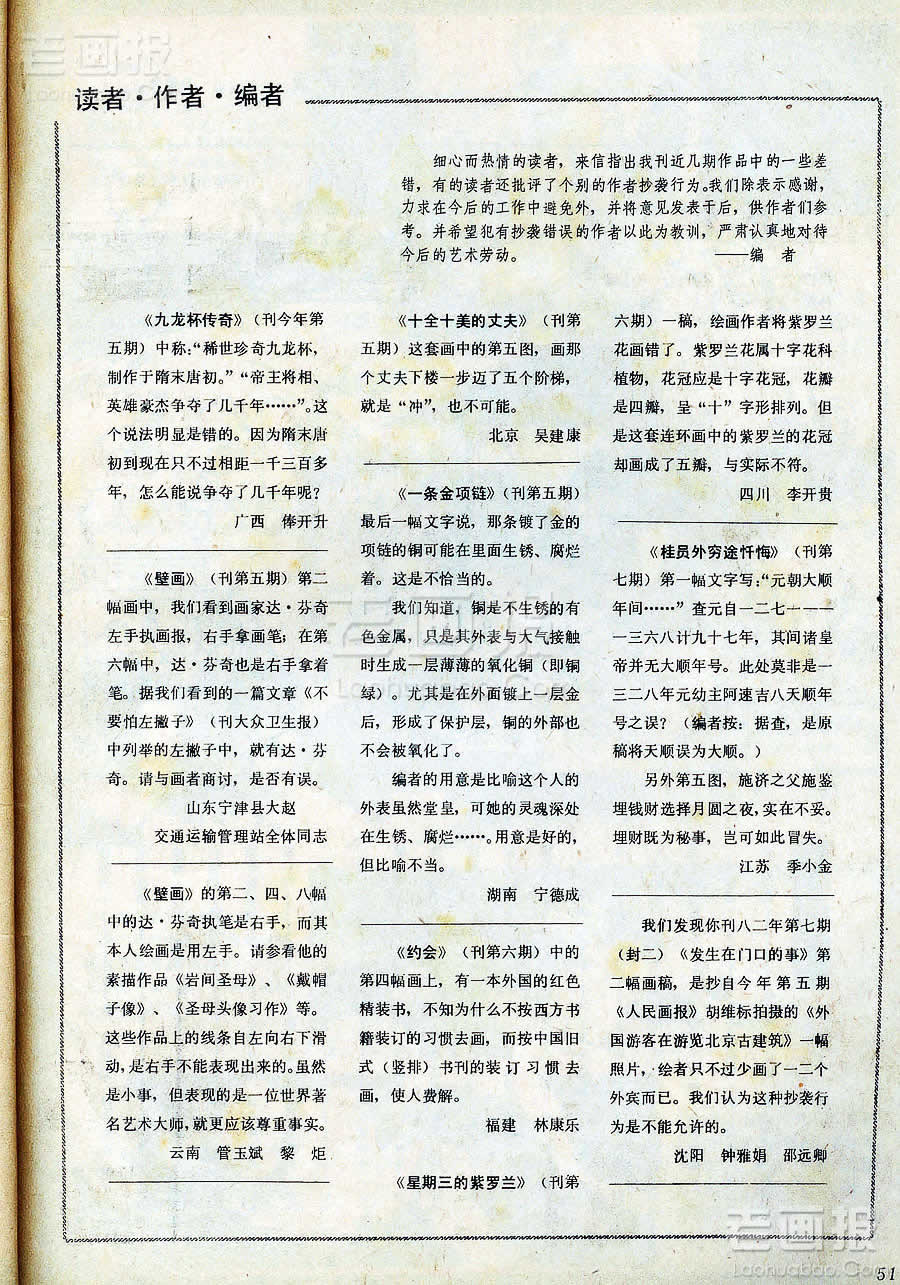 老画报
读者·作者·编者
细心而热情的读者，来信指出我刊近几期作品中的一些差
错，有的读者还批评了个别的作者抄袭行为。我们除表示感谢，
力求在今后的工作中避免外，并将意见发表于后，供作者们参
考。并希望犯有抄袭错误的作者以此为教训，严肃认真地对待
今后的艺术劳动。 ——编 者
《九龙杯传奇》（刊今年第
五期）中称：“稀世珍奇九龙杯，
制作于隋末唐初。”“帝王将相、
英雄豪杰争夺了几千年……”。这
个说法明显是错的。因为隋末唐
初到现在只不过相距一千三百多
年，怎么能说争夺了几千年呢？
广西 俸开升
《壁画》（刊第五期）第二
幅画中，我们看到画家达·芬奇
左手执画报，右手拿画笔；在第
六幅中，达·芬奇也是右手拿着
笔。据我们看到的一篇文章《不
要怕左撇子》（刊大众卫生报）
中列举的左撇子中，就有达·芬
奇。请与画者商讨，是否有误。
山东宁津县大赵
交通运输管理站全体同志
《壁画》的第二、四、八幅
中的达·芬奇执笔是右手，而其
本人绘画是用左手。请参看他的
素描作品《岩间圣母》、《戴帽
子像》、《圣母头像习作》等。
这些作品上的线条自左向右下滑
动，是右手不能表现出来的。虽然
是小事，但表现的是一位世界著
名艺术大师，就更应该尊重事实。
云南 管玉斌 黎 炬
《十全十美的丈夫》（刊第
五期）这套画中的第五图，画那
个丈夫下楼一步迈了五个阶梯，
就是“冲”，也不可能。
北京 吴建康
《一条金项链》（刊第五期）
最后一幅文字说，那条镀了金的
项链的铜可能在里面生锈、腐烂
着。这是不恰当的。
我们知道，铜是不生锈的有
色金属，只是其外表与大气接触
时生成一层薄薄的氧化铜（即铜
绿）。尤其是在外面镀上一层金
后，形成了保护层，铜的外部也
不会被氧化了。
编者的用意是比喻这个人的
外表虽然堂皇，可她的灵魂深处
在生锈、腐烂……。用意是好的，
但比喻不当。
湖南 宁德成
《约会》（刊第六期）中的
第四幅画上，有一本外国的红色
精装书，不知为什么不按西方书
籍装订的习惯去画，而按中国旧
式（竖排）书刊的装订习惯去
画，使人费解。
福建 林康乐
《星期三的紫罗兰》（刊第
六期）一稿，绘画作者将紫罗兰
花画错了。紫罗兰花属十字花科
植物，花冠应是十字花冠，花瓣
是四瓣，呈“十”字形排列。但
是这套连环画中的紫罗兰的花冠
却画成了五瓣，与实际不符。
四川 李开贵
《桂员外穷途忏悔》（刊第
七期）第一幅文字写：“元朝大顺
年间……”查元自一二七一——
一三六八计九十七年，其间诸皇
帝并无大顺年号。此处莫非是一
三二八年元幼主阿速吉八天顺年
号之误？（编者按：据查，是原
稿将天顺误为大顺。）
另外第五图，施济之父施鉴
埋钱财选择月圆之夜，实在不妥。
埋财既为秘事，岂可如此冒失。
江苏 季小金
我们发现你刊八二年第七期
（封二）《发生在门口的事》第
二幅画稿，是抄自今年第五期
《人民画报》胡维标拍摄的《外
国游客在游览北京古建筑》一幅
照片，绘者只不过少画了一二个
外宾而已。我们认为这种抄袭行
为是不能允许的。
沈阳 钟雅娟 邵远卿
老画报
Laohuabao.Com
老画报
Laohuabao.Com
51